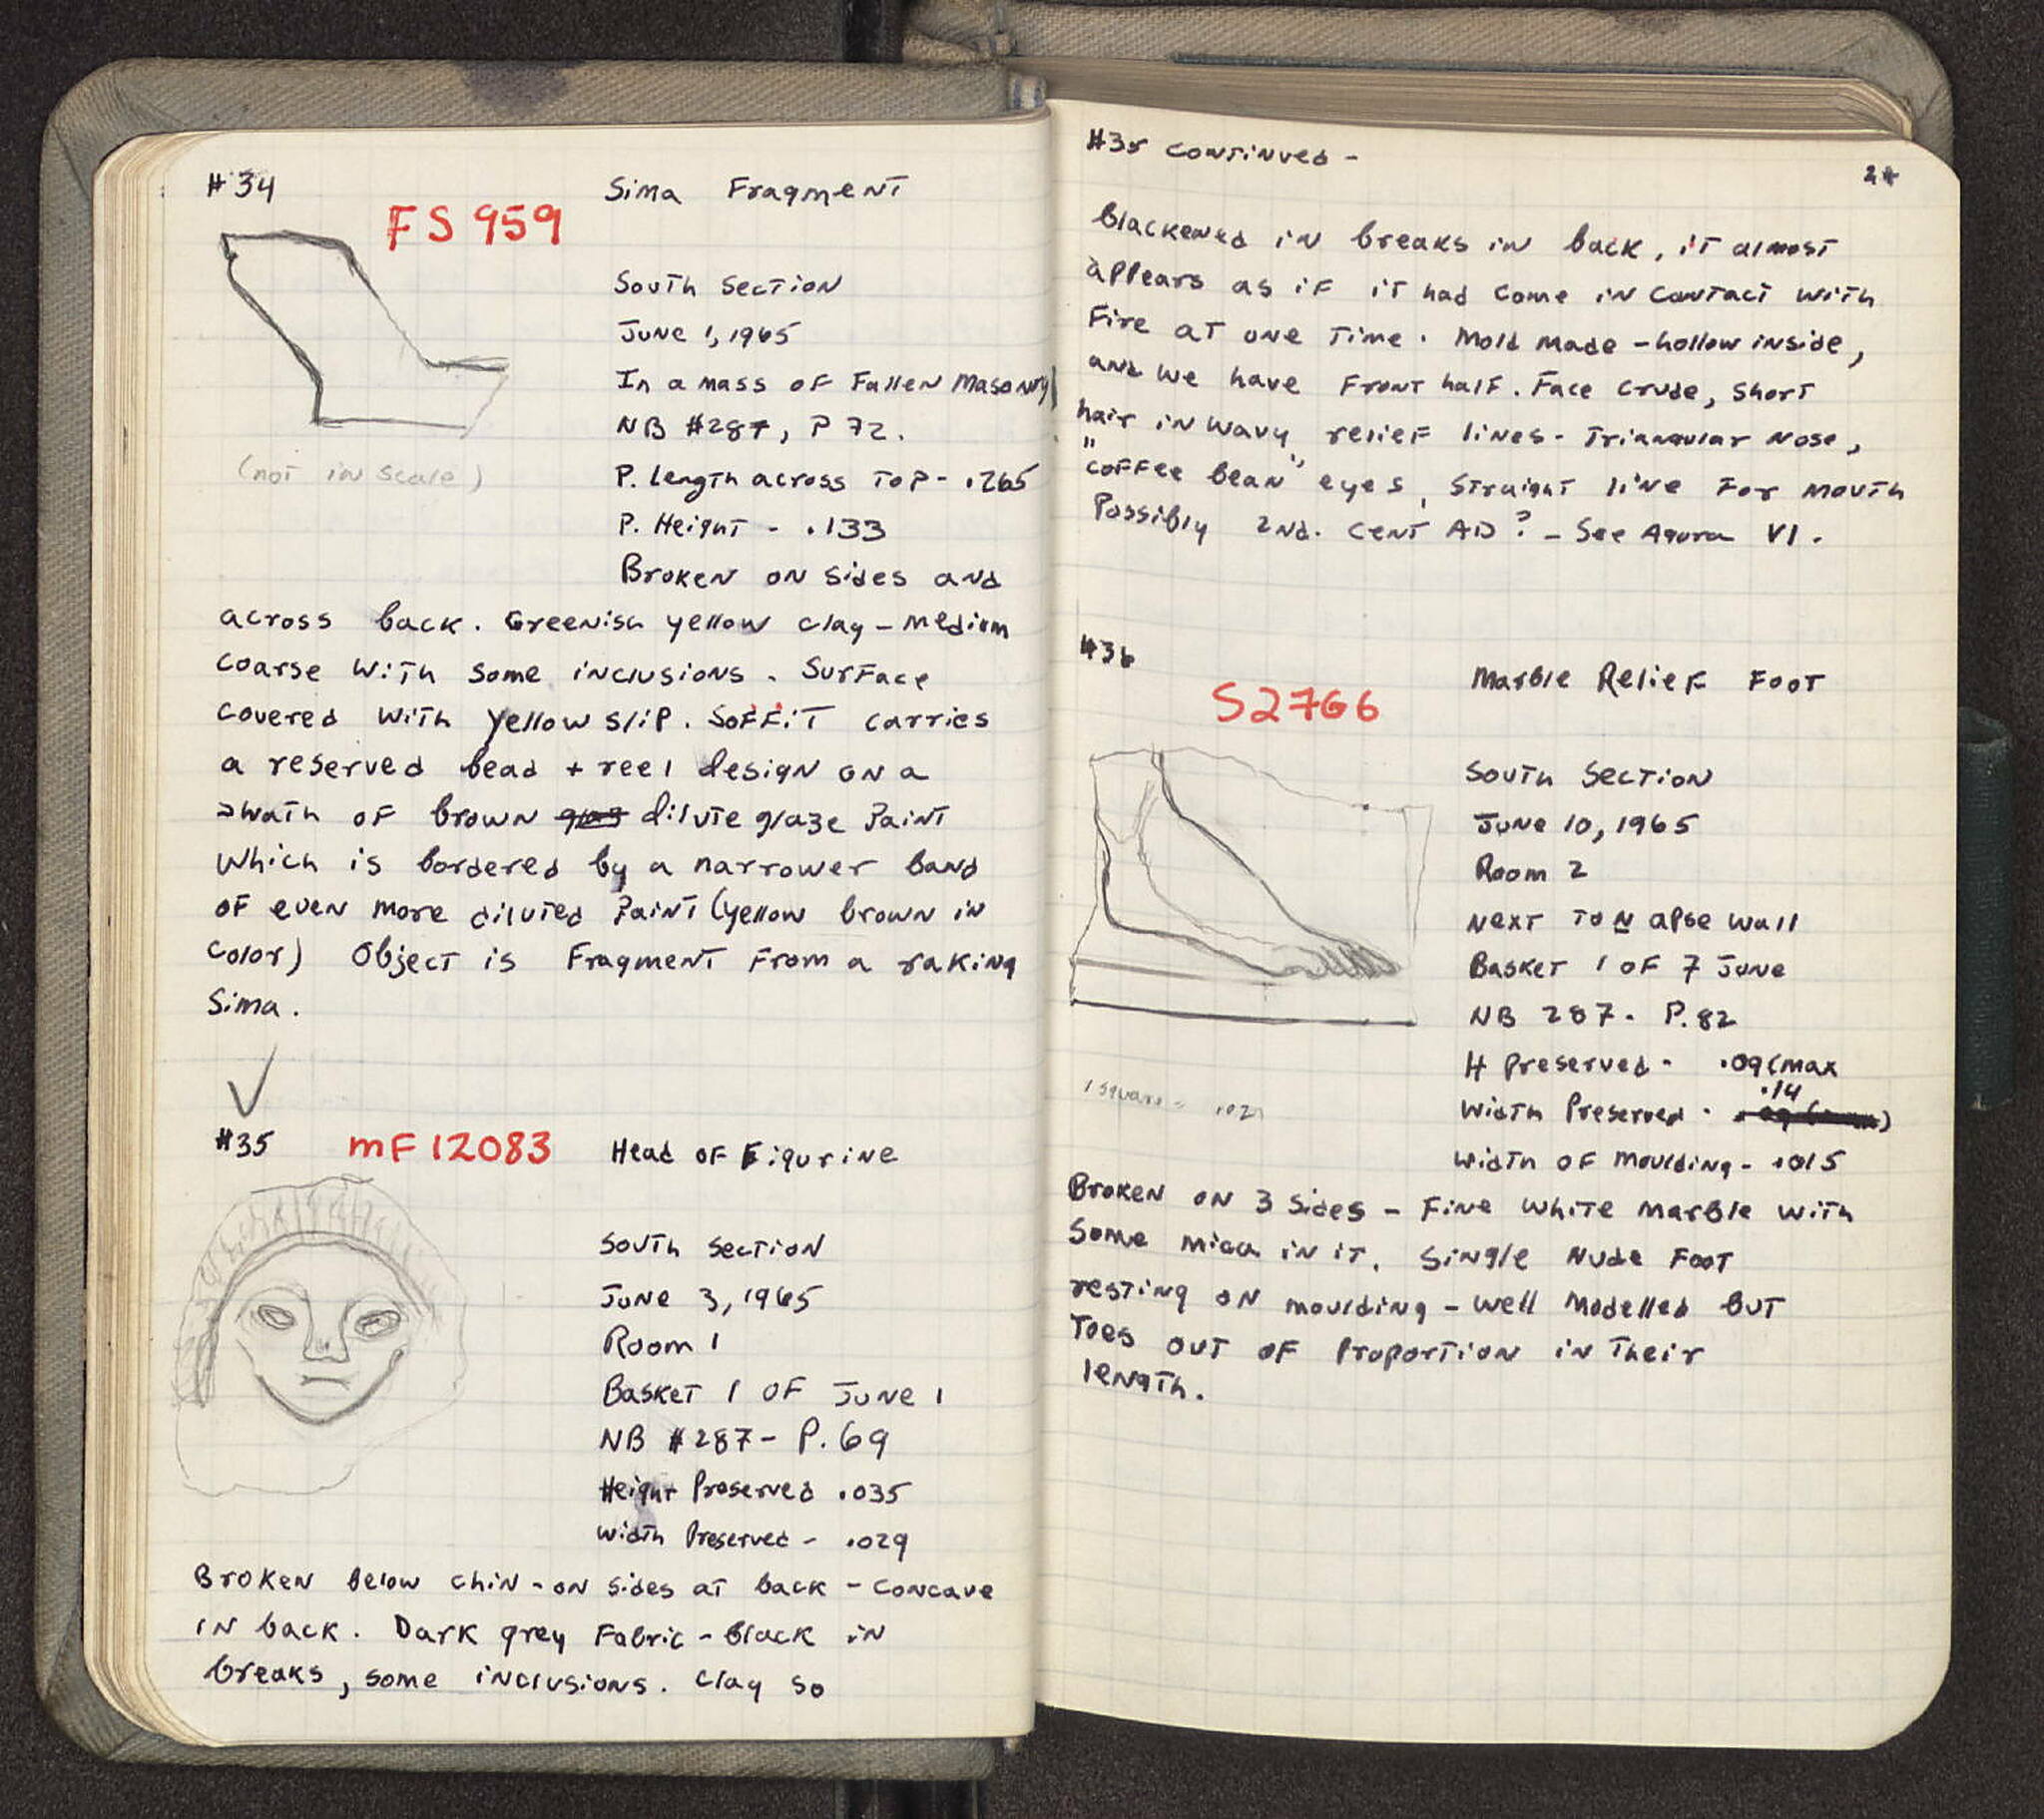 #34
Sima Fragment
FS 959
South Section
June 1, 1965
In a mass of Fallen Masonry
NB #287, P 72.
(not in scale)
P. Length across Top - .265
P. Height - .133
Broken on sides and
across back. Greenish yellow clay - medium
coarse with some inclusions. Surface
covered with yellow slip. Soffit carries
a reserved bead + reel design on a
swath of brown dilute glaze Paint
which is bordered by a narrower band
of even more diluted Paint (yellow brown in
color) Object is Fragment from a raking
Sima.
#35
MF 12083
Head of Figurine
South Section
June 3, 1965
Room 1
Basket 1 of June 1
NB #287 - P. 69
Height Preserved .035
Width Preserved - .029
Broken below chin - on sides at back - concave
in back. Dark grey Fabric - black in
breaks, some inclusions. Clay so
#35 continued -
blackened in breaks in back, it almost
appears as if it had come in contact with
Fire at one Time. Mold made - hollow inside,
and we have Front half. Face crude, short
hair in wavy relief lines - Triangular nose,
"coffee bean" eyes, straight line for mouth
Possibly 2nd. Cent AD? - See Agora VI.
#36
Marble Relief Foot
S2766
South Section
June 10, 1965
Room 2
Next to N apse wall
Basket 1 of 7 June
NB 287 - P. 82
H Preserved - .09 (max
.14
Width Preserved -
1 square = .021
Width of Moulding - .015
Broken on 3 sides - Fine white marble with
some mica in it. Single nude Foot
resting on moulding - well modelled but
Toes out of proportion in their
length.